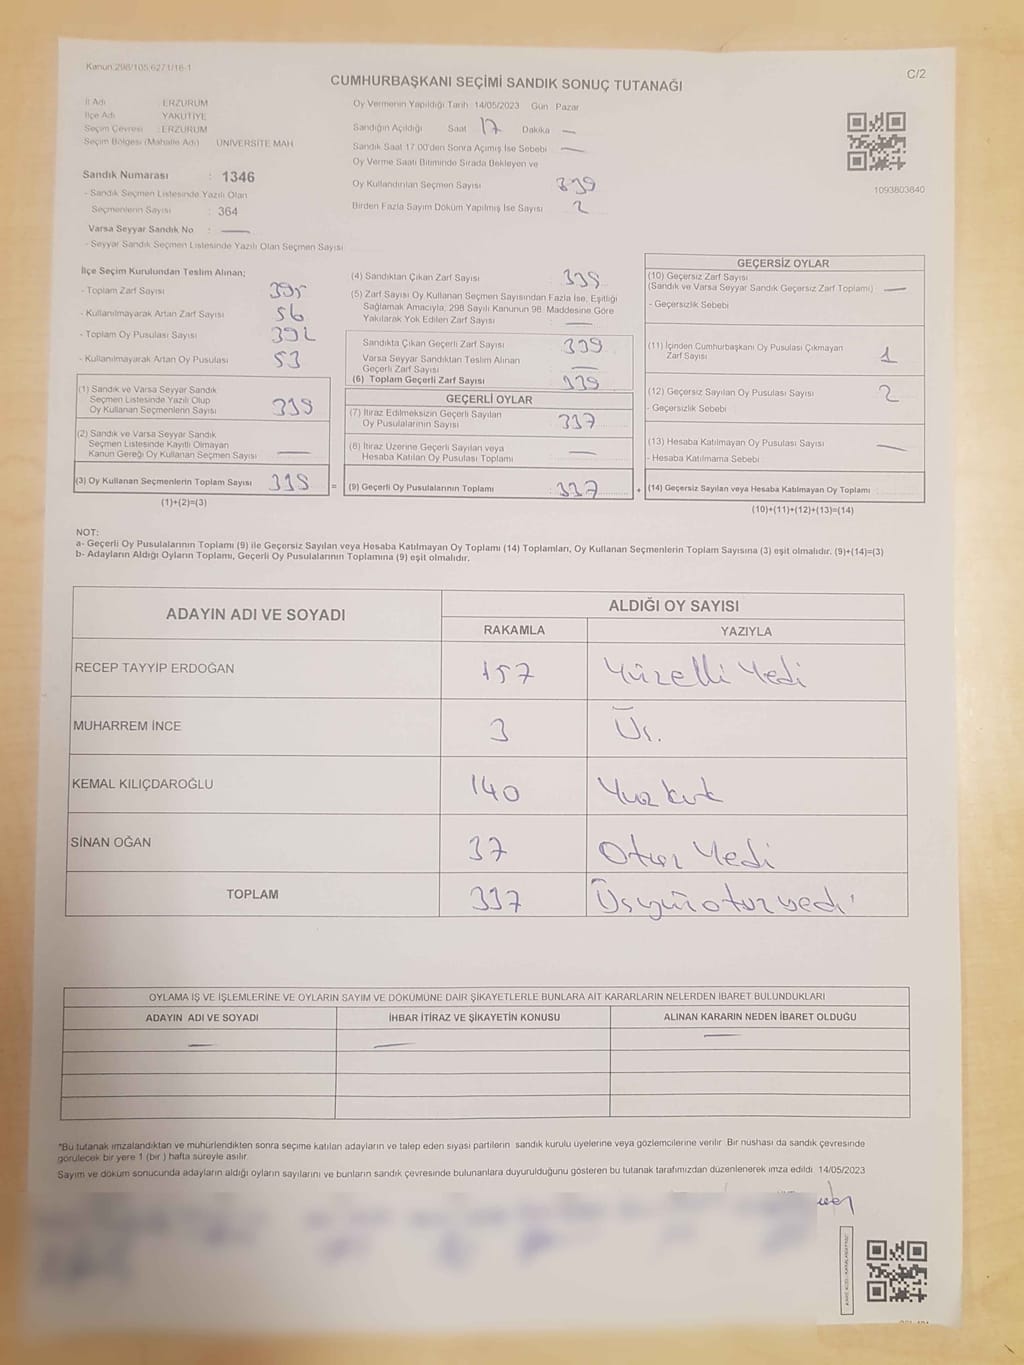 Kanun 298/105,6271/18-1
C/2
CUMHURBAŞKANI SEÇİMİ SANDIK SONUÇ TUTANAĞI
İl Adı : ERZURUM
İlçe Adı : YAKUTİYE
Seçim Çevresi : ERZURUM
Seçim Bölgesi (Mahalle Adı) : ÜNİVERSİTE MAH
Sandık Numarası : 1346
- Sandık Seçmen Listesinde Yazılı Olan
Seçmenlerin Sayısı : 364
Varsa Seyyar Sandık No : —
- Seyyar Sandık Seçmen Listesinde Yazılı Olan Seçmen Sayısı
Oy Vermenin Yapıldığı Tarih 14/05/2023 Gün : Pazar
Sandığın Açıldığı Saat 17 Dakika —
Sandık Saat 17.00'den Sonra Açımış İse Sebebi —
Oy Verme Saati Bitiminde Sırada Bekleyen ve
Oy Kullandırılan Seçmen Sayısı 339
Birden Fazla Sayım Döküm Yapılmış İse Sayısı 2
1093803640
İlçe Seçim Kurulundan Teslim Alınan;
- Toplam Zarf Sayısı 395
- Kullanılmayarak Artan Zarf Sayısı 56
- Toplam Oy Pusulası Sayısı 392
- Kullanılmayarak Artan Oy Pusulası 53
(1) Sandık ve Varsa Seyyar Sandık
Seçmen Listesinde Yazılı Olup
Oy Kullanan Seçmenlerin Sayısı 339
(2) Sandık ve Varsa Seyyar Sandık
Seçmen Listesinde Kayıtlı Olmayan
Kanun Gereği Oy Kullanan Seçmen Sayısı —
(3) Oy Kullanan Seçmenlerin Toplam Sayısı 339 =
(1)+(2)=(3)
(4) Sandıktan Çıkan Zarf Sayısı 339
(5) Zarf Sayısı Oy Kullanan Seçmen Sayısından Fazla İse, Eşitliği
Sağlamak Amacıyla, 298 Sayılı Kanunun 98. Maddesine Göre
Yakılarak Yok Edilen Zarf Sayısı —
Sandıkta Çıkan Geçerli Zarf Sayısı 339
Varsa Seyyar Sandıktan Teslim Alınan
Geçerli Zarf Sayısı —
(6) Toplam Geçerli Zarf Sayısı 339
GEÇERLİ OYLAR
(7) İtiraz Edilmeksizin Geçerli Sayılan
Oy Pusulalarının Sayısı 337
(8) İtiraz Üzerine Geçerli Sayılan veya
Hesaba Katılan Oy Pusulası Toplamı —
(9) Geçerli Oy Pusulalarının Toplamı : 337 +
GEÇERSİZ OYLAR
(10) Geçersiz Zarf Sayısı
(Sandık ve Varsa Seyyar Sandık Geçersiz Zarf Toplamı) —
- Geçersizlik Sebebi
(11) İçinden Cumhurbaşkanı Oy Pusulası Çıkmayan
Zarf Sayısı 1
(12) Geçersiz Sayılan Oy Pusulası Sayısı 2
- Geçersizlik Sebebi
(13) Hesaba Katılmayan Oy Pusulası Sayısı —
- Hesaba Katılmama Sebebi
(14) Geçersiz Sayılan veya Hesaba Katılmayan Oy Toplamı
(10)+(11)+(12)+(13)=(14)
NOT:
a- Geçerli Oy Pusulalarının Toplamı (9) ile Geçersiz Sayılan veya Hesaba Katılmayan Oy Toplamı (14) Toplamları, Oy Kullanan Seçmenlerin Toplam Sayısına (3) eşit olmalıdır. (9)+(14)=(3)
b- Adayların Aldığı Oyların Toplamı, Geçerli Oy Pusulalarının Toplamına (9) eşit olmalıdır.
ADAYIN ADI VE SOYADI ALDIĞI OY SAYISI
RAKAMLA YAZIYLA
RECEP TAYYİP ERDOĞAN 157 Yüzelli Yedi
MUHARREM İNCE 3 Üç.
KEMAL KILIÇDAROĞLU 140 Yüz kırk
SİNAN OĞAN 37 Otuz Yedi
TOPLAM 337 Üçyüzotuzyedi
OYLAMA İŞ VE İŞLEMLERİNE VE OYLARIN SAYIM VE DÖKÜMÜNE DAİR ŞİKAYETLERLE BUNLARA AİT KARARLARIN NELERDEN İBARET BULUNDUKLARI
ADAYIN ADI VE SOYADI İHBAR İTİRAZ VE ŞİKAYETİN KONUSU ALINAN KARARIN NEDEN İBARET OLDUĞU
— — —
*Bu tutanak imzalandıktan ve mühürlendikten sonra seçime katılan adayların ve talep eden siyasi partilerin sandık kurulu üyelerine veya gözlemcilerine verilir. Bir nüshası da sandık çevresinde
görülecek bir yere 1 (bir ) hafta süreyle asılır.
Sayım ve döküm sonucunda adayların aldığı oyların sayılarını ve bunların sandık çevresinde bulunanlara duyurulduğunu gösteren bu tutanak tarafımızdan düzenlenerek imza edildi 14/05/2023